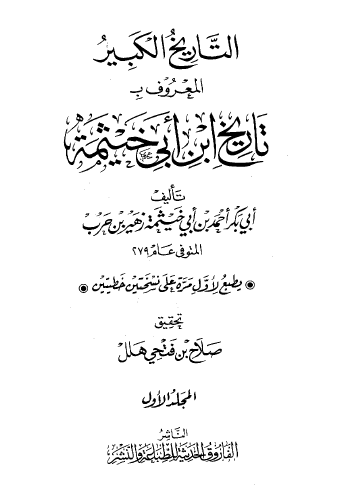 التَّاريخُ الكَبيرُ
المَعْرُوف بِـ
تاريخ ابن أبي خيثمة
تأليف
أبي بكر أحمد بن أبي خيثمة زهير بن حرب
المتوفى عام ٢٧٩
يطبع لأول مرة على نسختين خطيتين
تحقيق
صلاح بن فتحي هلل
المجلد الأول
الناشر
الفاروق الحديثة للطباعة والنشر